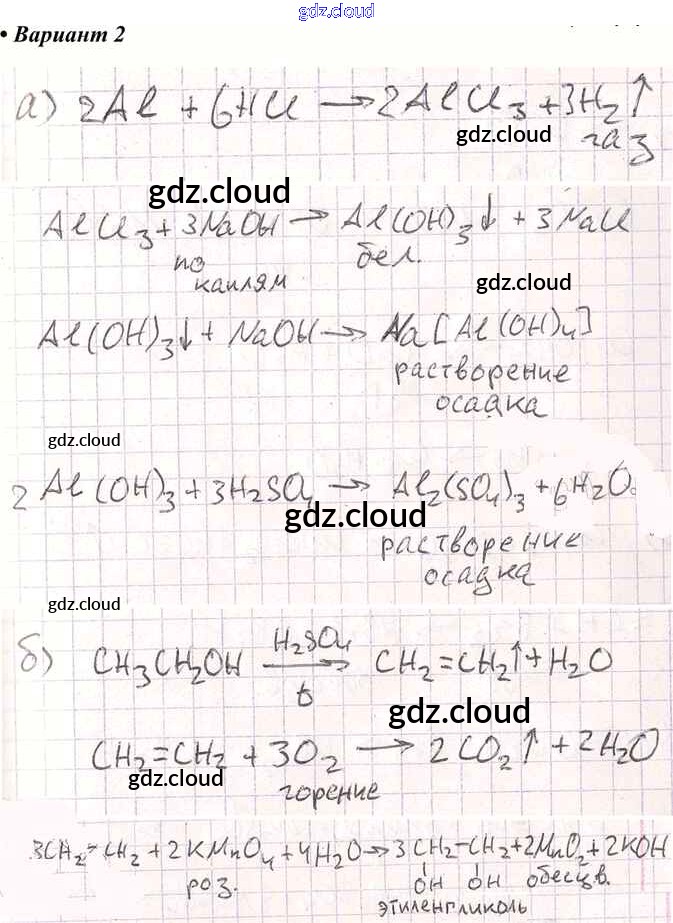 gdz.cloud
• Вариант 2
а) 2Al + 6HCl → 2AlCl₃ + 3H₂↑
gdz.cloud
газ
gdz.cloud
AlCl₃ + 3NaOH → Al(OH)₃↓ + 3NaCl
по каплям
бел.
gdz.cloud
Al(OH)₃↓ + NaOH → Na[Al(OH)₄]
растворение
осадка
gdz.cloud
2Al(OH)₃ + 3H₂SO₄ → Al₂(SO₄)₃ + 6H₂O
gdz.cloud
растворение
осадка
gdz.cloud
б) CH₃CH₂OH —H₂SO₄, t→ CH₂=CH₂↑ + H₂O
gdz.cloud
CH₂=CH₂ + 3O₂ → 2CO₂↑ + 2H₂O
gdz.cloud
горение
3CH₂=CH₂ + 2KMnO₄ + 4H₂O → 3CH₂-CH₂ + 2MnO₂ + 2KOH
роз.
OH OH обесцв.
этиленгликоль